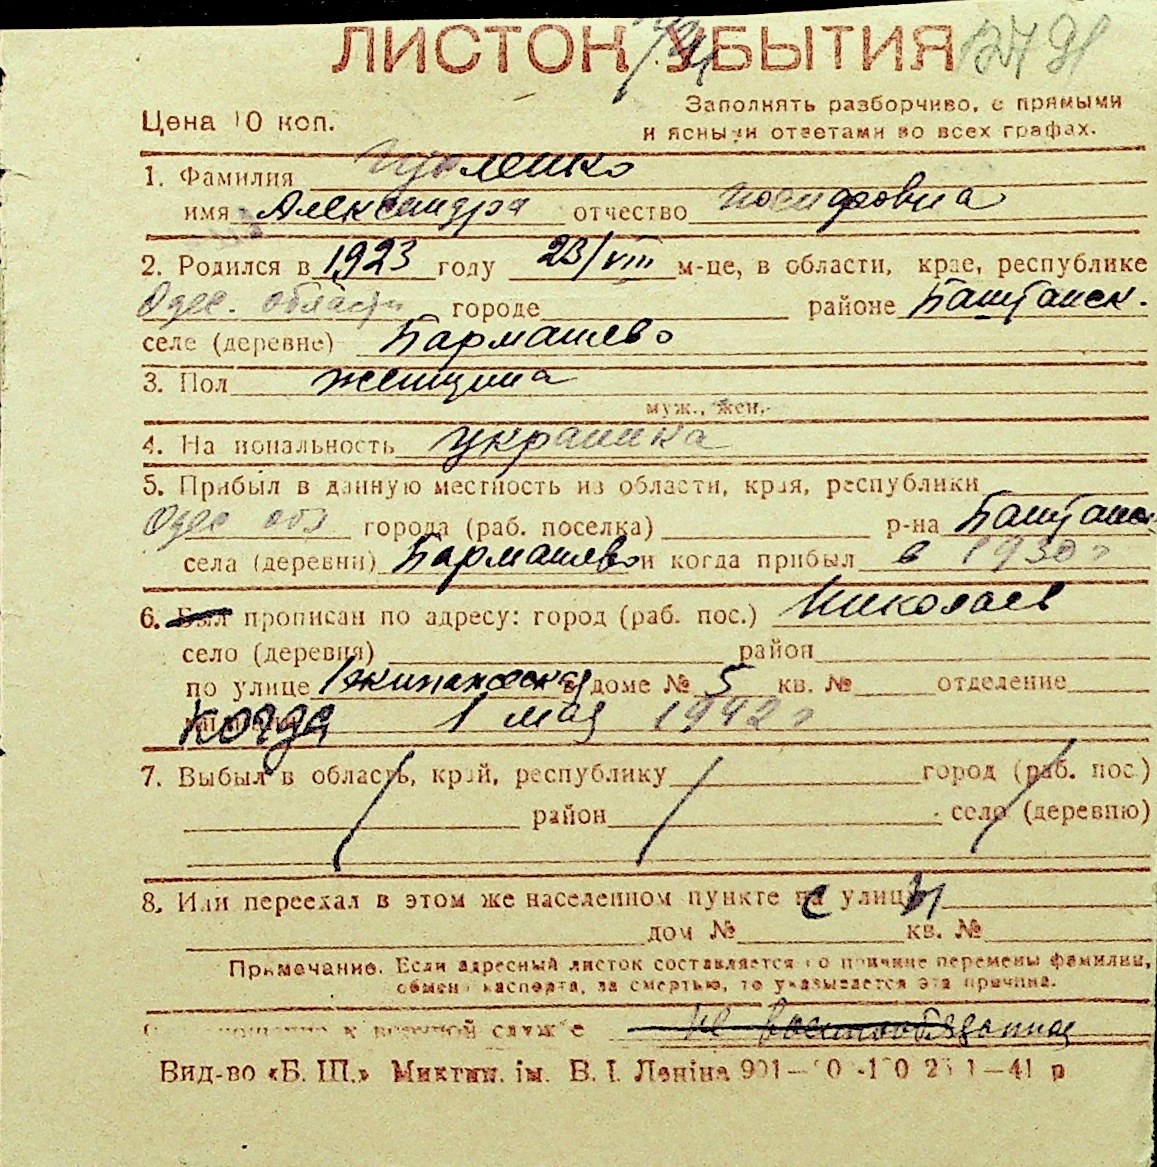 ЛИСТОК УБЫТИЯ
Цена 10 коп.
Заполнять разборчиво, с прямыми
и ясными ответами во всех графах.
1. Фамилия
имя Александра отчество Иосифовна
2. Родился в 1923 году 23/VIII м-це, в области, крае, республике
Одес. области городе районе Баштанск.
селе (деревне) Бармашево
3. Пол женщина
муж., жен.
4. Национальность украинка
5. Прибыл в данную местность из области, края, республики
Одес обл города (раб. поселка) р-на Баштанск
села (деревни) Бармашево и когда прибыл в 1930 г
6. Был прописан по адресу: город (раб. пос.) Николаев
село (деревня) район
по улице в доме № 5 кв. № отделение
когда 1 мая 1942 г
7. Выбыл в область, край, республику город (раб. пос.)
район село (деревню)
8. Или переехал в этом же населенном пункте с улицы
дом № кв. №
Примечание. Если адресный листок составляется по причине перемены фамилии,
обмена паспорта, за смертью, то указывается эта причина.
к военной службе не военнообязанная
Вид-во «Б. Ш.» Миктип. ім. В. І. Леніна